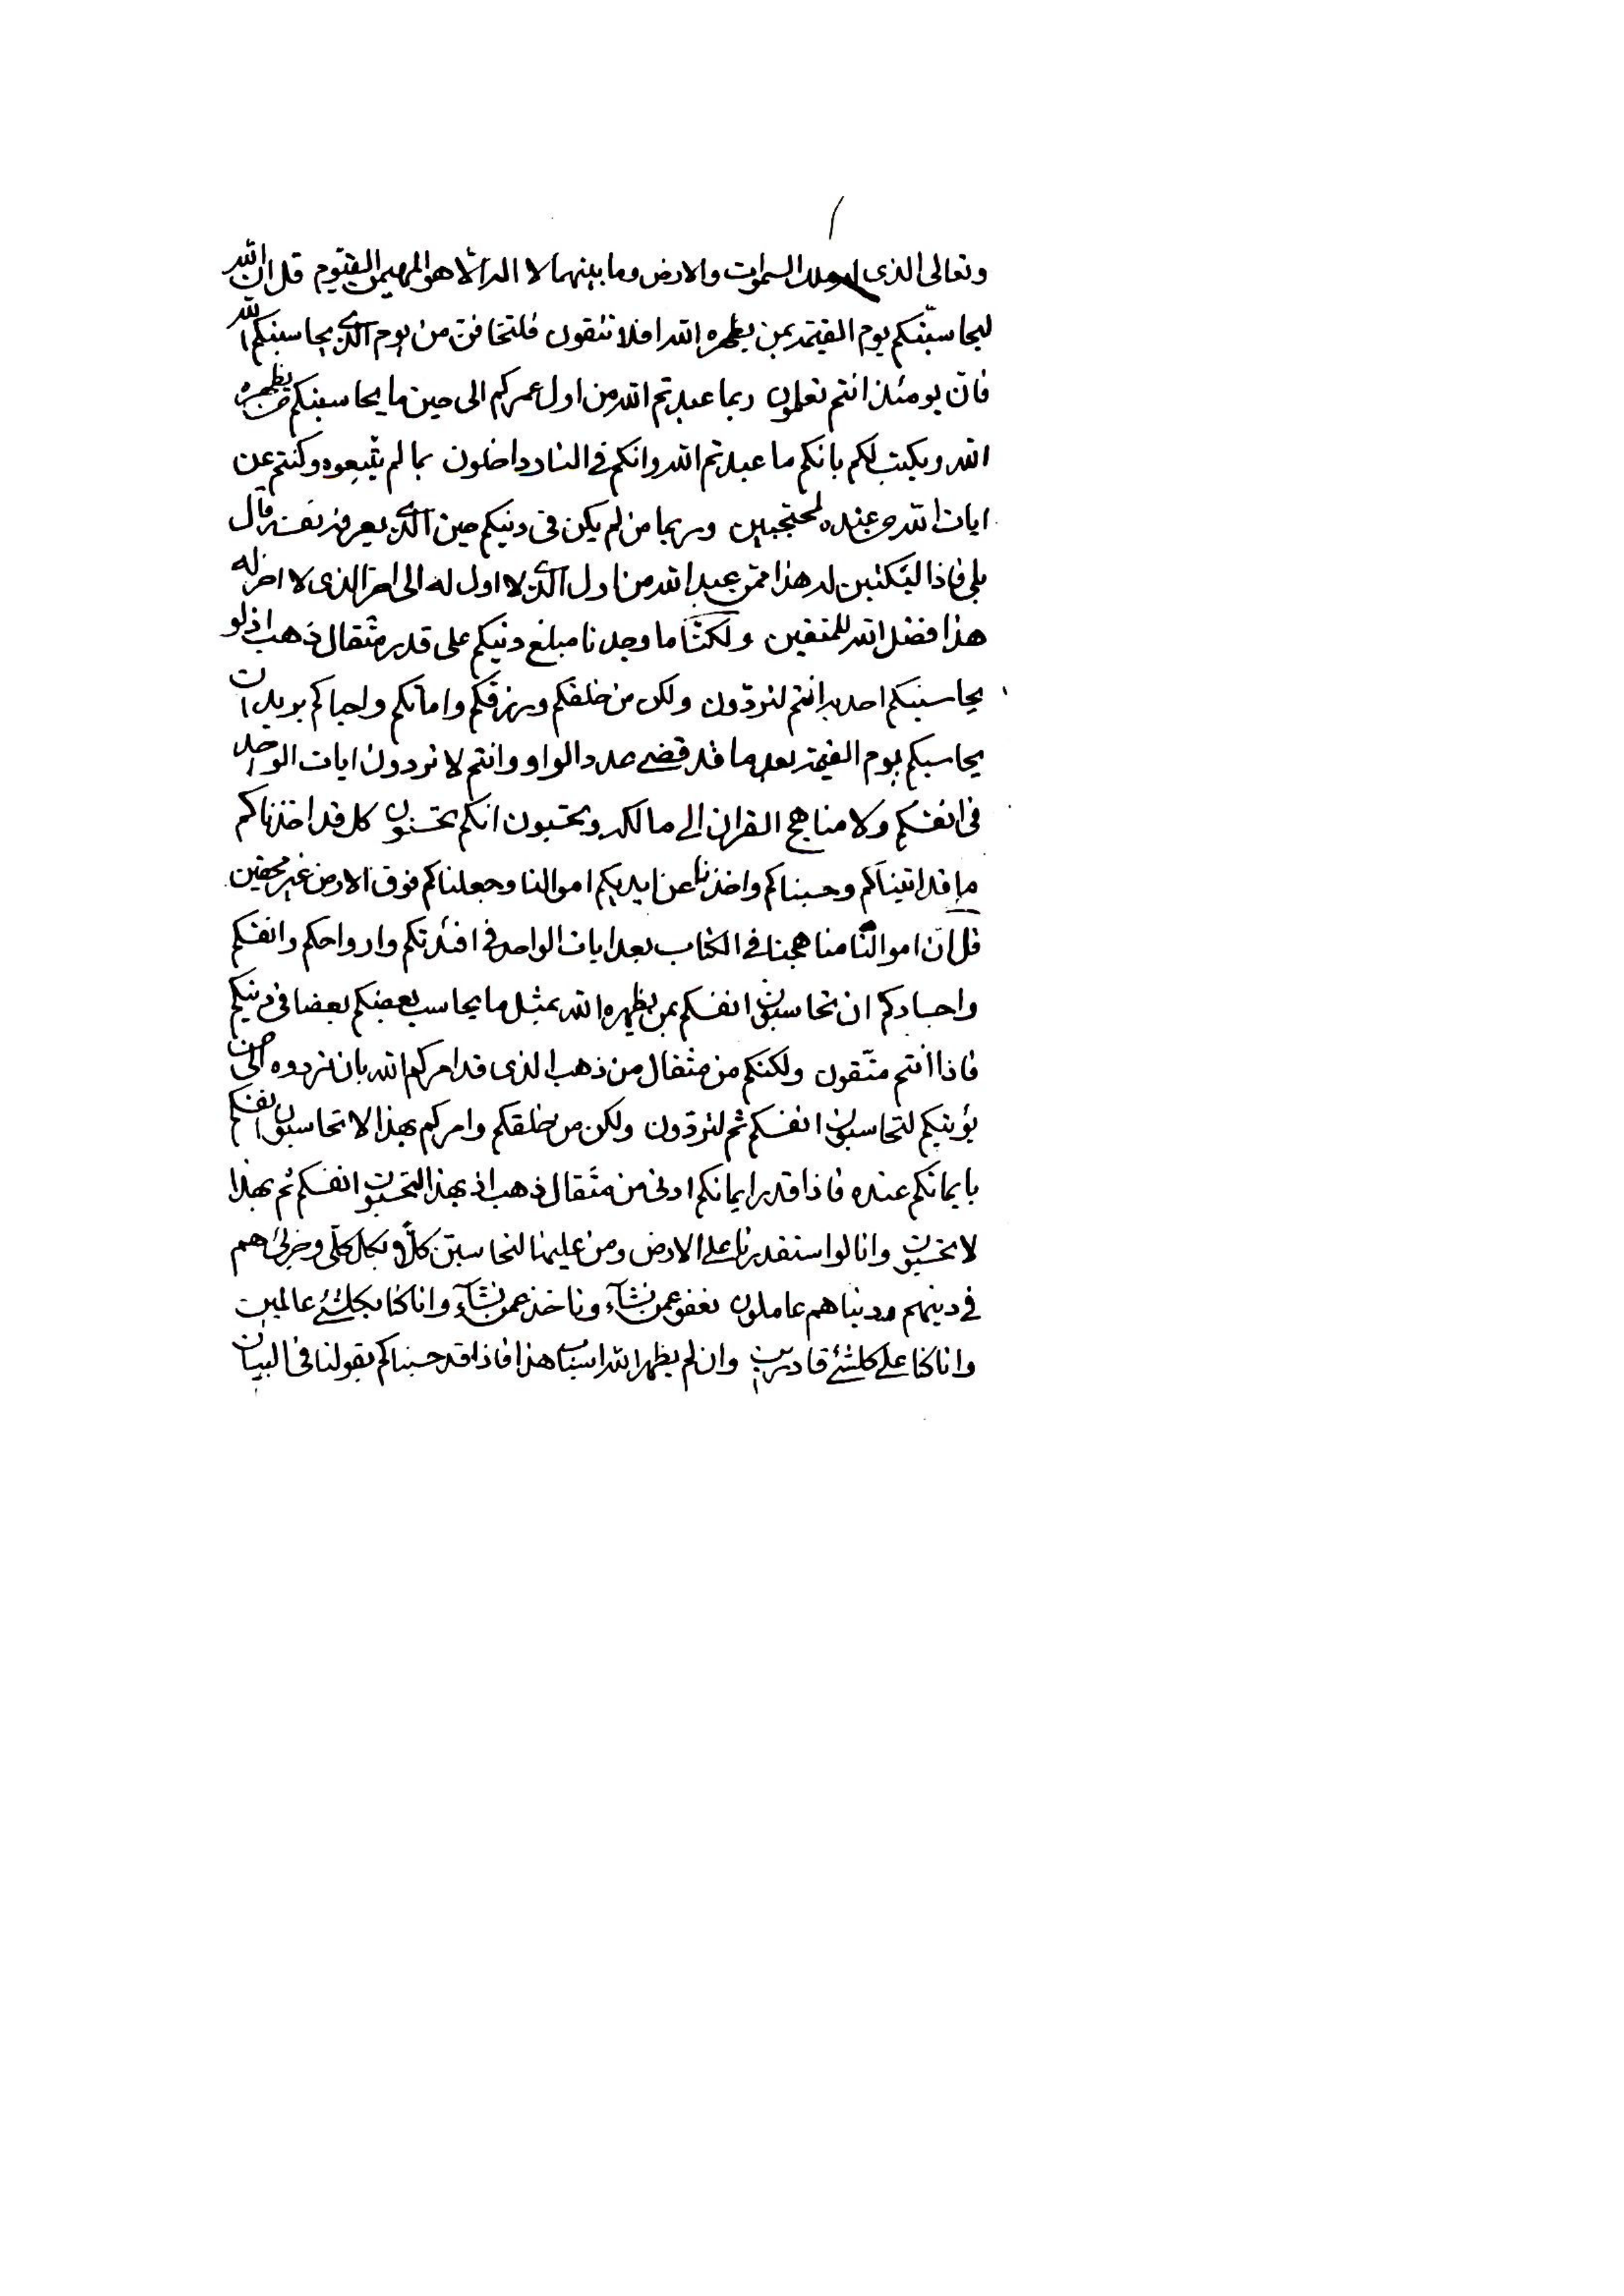 وتعالى الذى له ملك السموات والارض وما بينهما لا اله الا هو المهيمن القيوم قل ان الله
ليحاسبنكم يوم القيمة بمن يظهره الله افلا تتقون فلتخافن من يوم الذى يحاسبنكم الله
فان يومئذ انتم تعلمون ربما عبدتم الله من اول عمركم الى حين ما يحاسبنكم من يظهره
الله ويكتب لكم بانكم ما عبدتم الله وانكم فى النار داخلون بما لم يتبعوه وكنتم عن
ايات الله من عنده لمحتجبين وربما من لم يكن فى دينكم حين الذى يعرفه نفسه قال
بلى فاذا ليكتبن له هذا ممن عبد الله من اول الذى لا اول له الى اخر الذى لا اخر له
هذا فضل الله للمتقين ولكنا ما وجدنا مبلغ دينكم على قدر مثقال ذهب اذ لو
يحاسبنكم احد به انتم لتردون ولكن من خلقكم ورزقكم واماتكم واحياكم يريد ان
يحاسبكم يوم القيمة بعد ما قد قضى عدد الواو وانتم لا تردون ايات الواحد
فى انفسكم ولا مناهج القران الى مالكه وتحسبون انكم تحسنون كل قد اخذناكم
ما قد اتيناكم وحسبناكم واخذنا عن ايديكم اموالنا وجعلناكم فوق الارض غير محقين
قل ان اموالنا مناهجنا فى الكتاب بعد ايات الواحد فى افئدتكم وارواحكم وانفسكم
واجسادكم ان تحاسبون انفسكم بمن يظهره الله بمثل ما يحاسب بعضكم بعضا فى دينكم
فاذا انتم متقون ولكنكم من مثقال من ذهب الذى قد امركم الله بان تردوه الى من
يؤتيكم لتحاسبون انفسكم ثم لتردون ولكن من خلقكم وامركم بهذا لا تحاسبون انفسكم
بايمانكم عنده فاذا قدر ايمانكم ادنى من مثقال ذهب اذ بهذا لتحسبون انفسكم ثم بهذا
لا تحسبون وانا لو استقدرنا على الارض ومن عليها لنحاسبن كلا وبكل كلى وجزئى هم
فى دينهم ودنياهم عاملون نعفو عمن نشآء وناخذ عمن نشآء وانا كنا بكلشئ عالمين
وانا كنا على كلشئ قادرين وان لم يظهر الله اسباب هذا فاذا قد حسبناكم بقولنا فى البيان